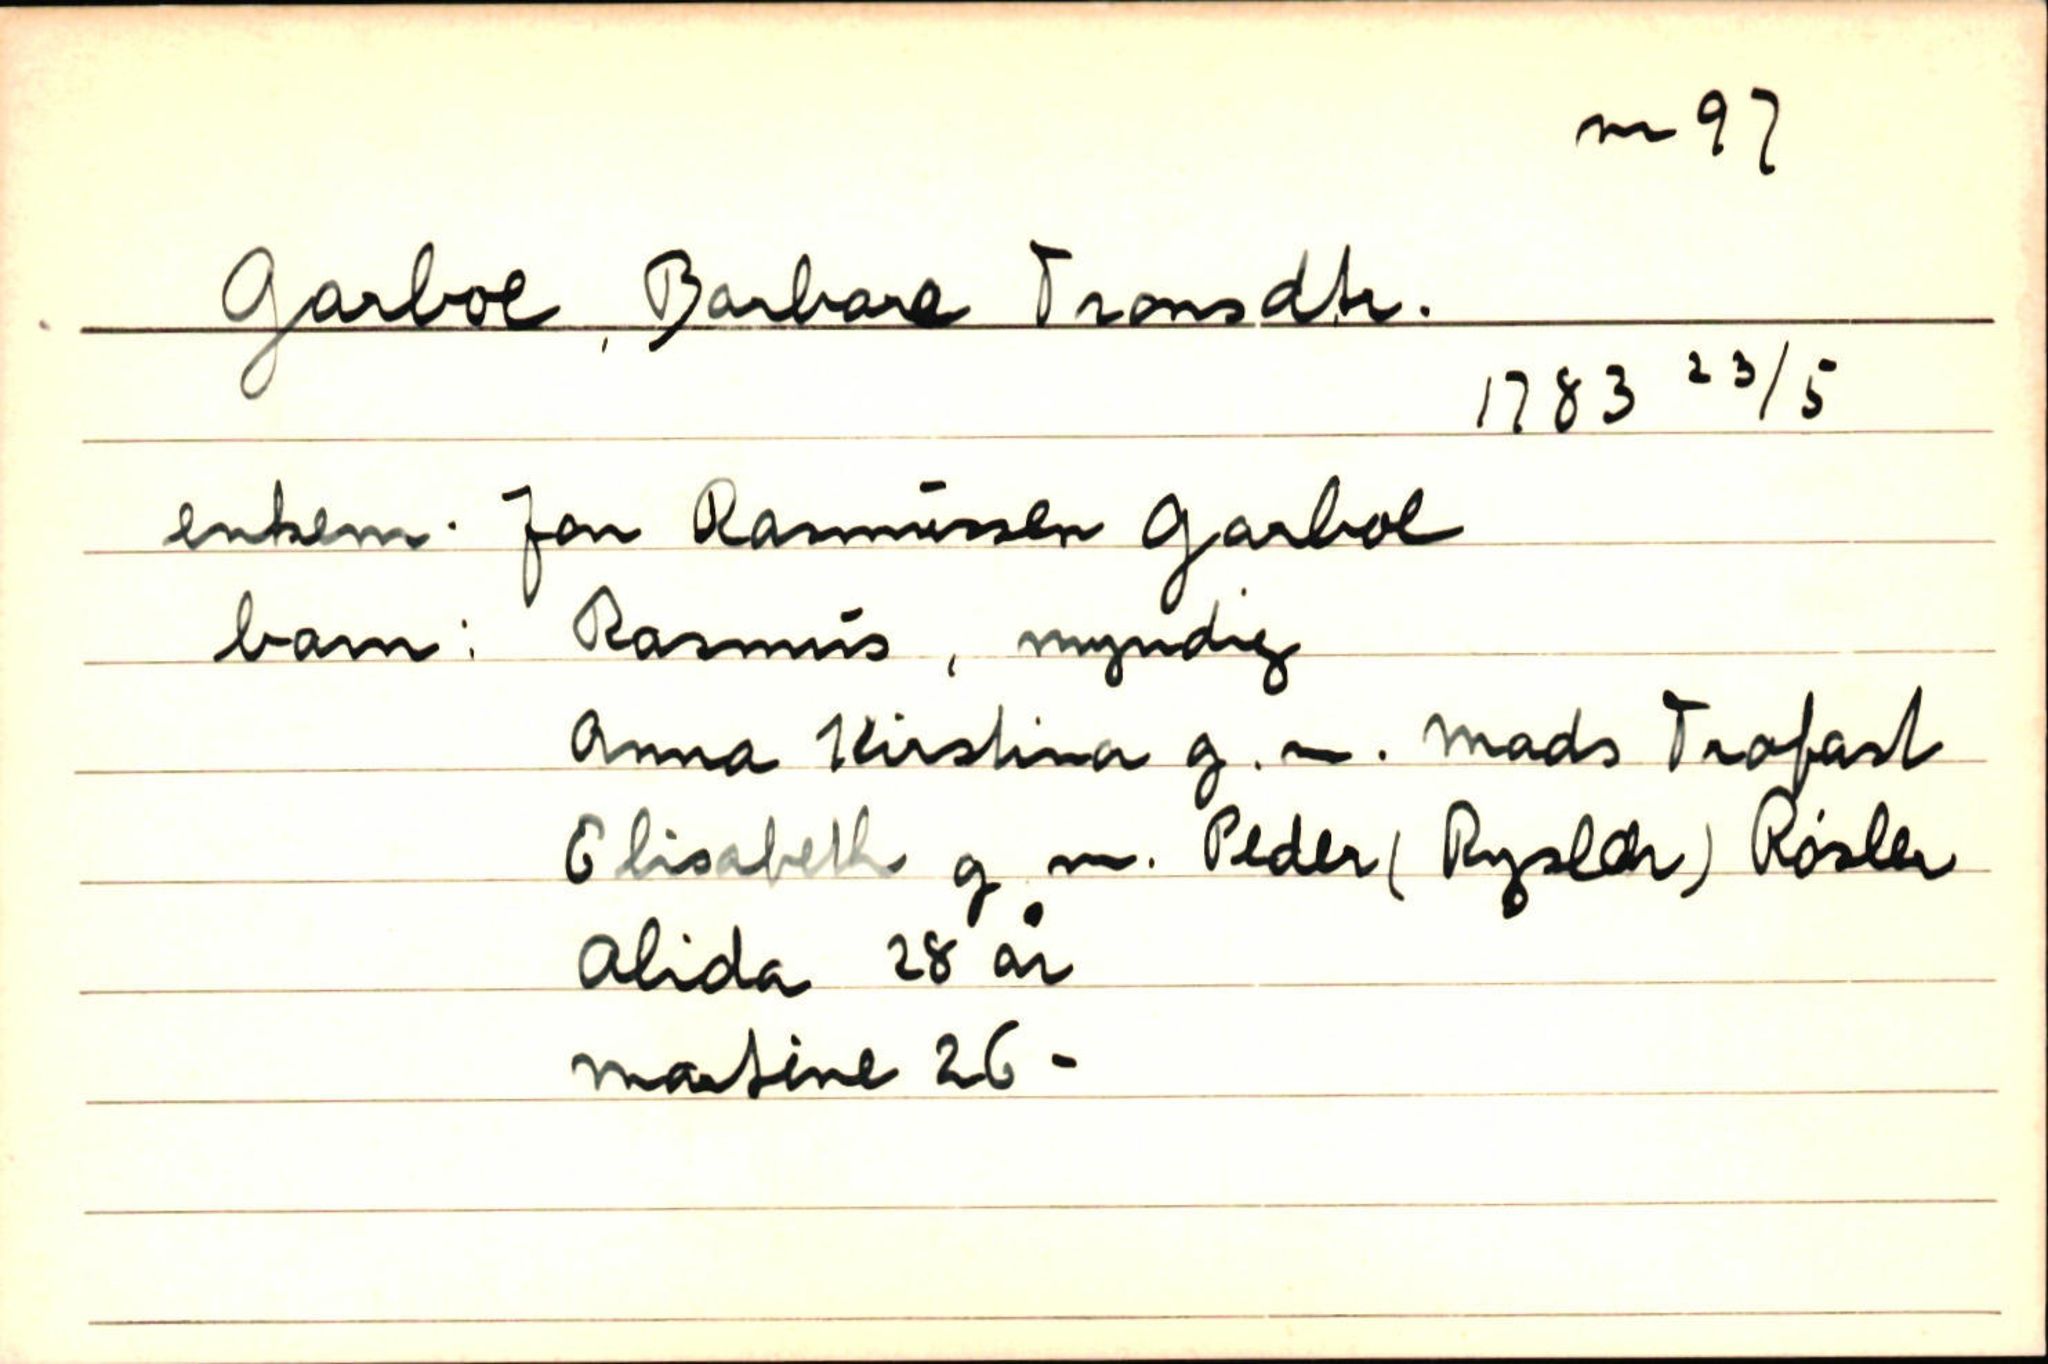 nr 97
Garboe, Barbara Tronsdtr.
1783 23/5
enkem. Jon Rasmussen Garboe
barn: Rasmus, myndig
Anna Kirstina g.m. Mads Trofast
Elisabeth g m. Peder (Ryslær) Røsler
Alida 28 år
Martine 26 -